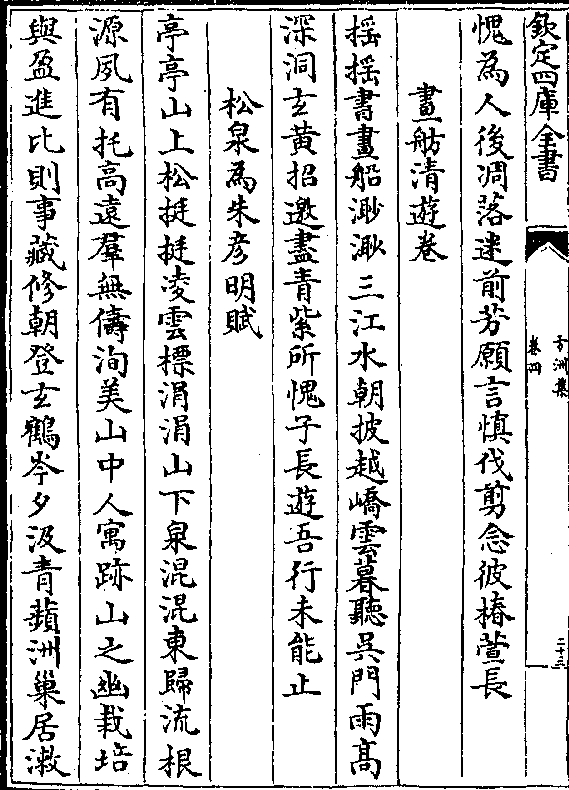 欽定四庫全書
卷四
二十三
愧為人後凋落迷前芳願言慎伐剪念彼椿萱長
畫舫清遊卷
揺揺書畫船渺渺三江水朝披越嶠雲暮聽吳門雨高
深洞玄黄招邀盡青紫所愧子長遊吾行未能止
松泉為朱彦明賦
亭亭山上松挺挺凌雲標涓涓山下泉混混東歸流根
源夙有托高遠羣無儔洵美山中人寓跡山之幽栽培
與盈進比則事藏修朝登玄鶴岑夕汲青蘋洲巢居漱